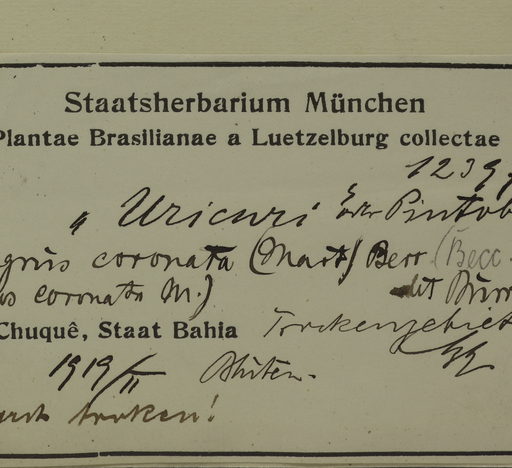 Staatsherbarium München
Plantae Brasilianae a Luetzelburg collectae
1239
" Uricuri
grus coronata (Mart) Becc (Becc
us coronata M.)
Chuquê, Staat Bahia Trockengebiet
1919/II Blüten.
trocken!